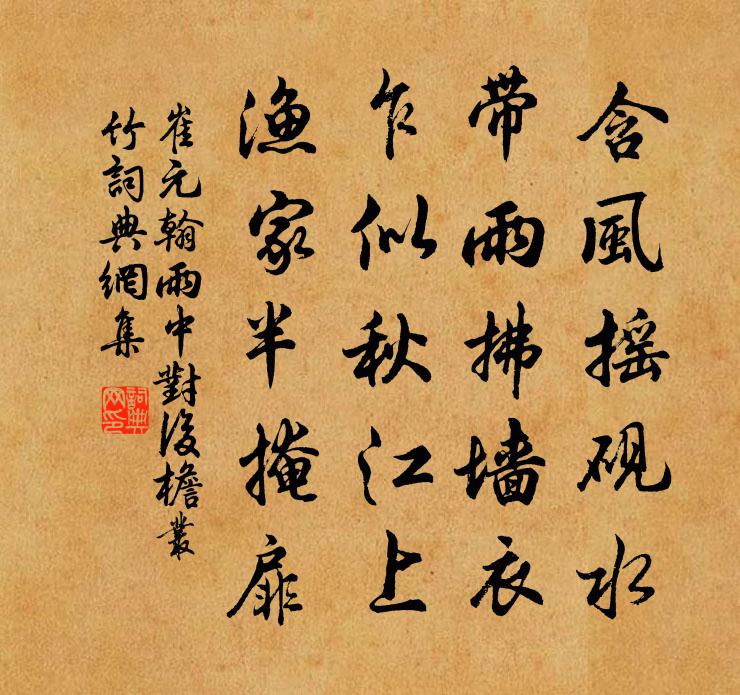 含風摇硯水
带雨拂墙衣
乍似秋江上
漁家半掩扉
崔元翰雨中對後檐叢
竹詞典網集
詞典
网印